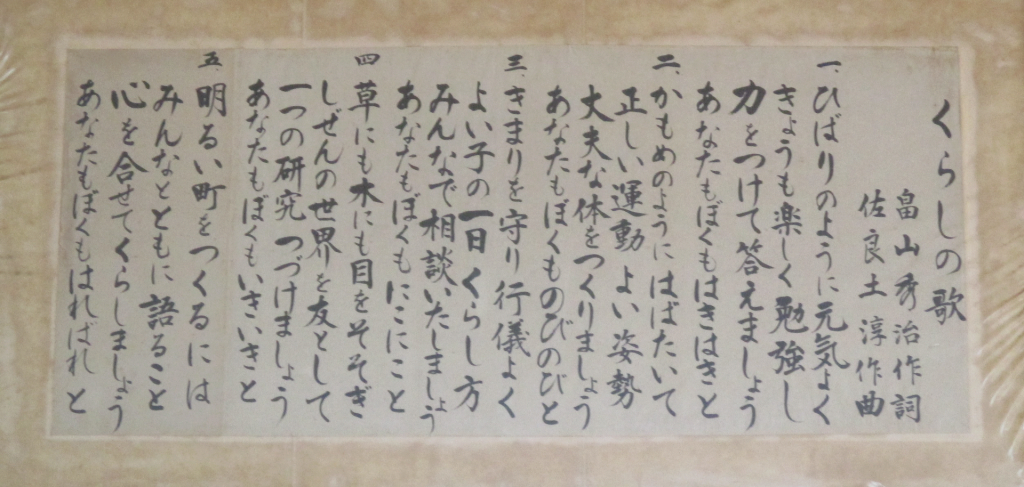 くらしの歌
畠山秀治作詞
佐良土淳作曲
一、ひばりのように元気よく
きょうも楽しく勉強し
力をつけて答えましょう
あなたもぼくもはきはきと
二、かもめのようにはばたいて
正しい運動よい姿勢
大夫な体をつくりましょう
あなたもぼくものびのびと
三、きまりを守り行儀よく
よい子の一日くらし方
みんなで相談いたしましょう
あなたもぼくもにこにこと
四 草にも木にも目をそそぎ
しぜんの世界を友として
一つの研究つづけましょう
あなたもぼくもいきいきと
五、明るい町をつくるには
みんなとともに語ること
心を合せてくらしましょう
あなたもぼくもはればれと